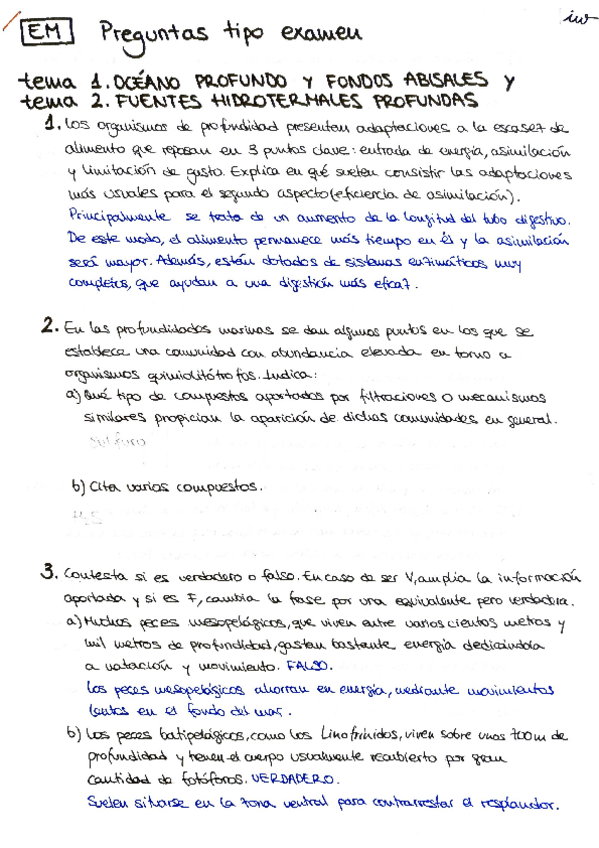 iw
EM Preguntas tipo examen
tema 1. OCÉANO PROFUNDO Y FONDOS ABISALES y
tema 2. FUENTES HIDROTERMALES PROFUNDAS
1. Los organismos de profundidad presentan adaptaciones a la escasez de
alimento que reposan en 3 puntos clave: entrada de energía, asimilación
y limitación de gasto. Explica en qué suelen consistir las adaptaciones
más usuales para el segundo aspecto (eficiencia de asimilación).
Principalmente se trata de un aumento de la longitud del tubo digestivo.
De este modo, el alimento permanece más tiempo en él y la asimilación
será mayor. Además, están dotados de sistemas enzimáticos muy
completos, que ayudan a una digestión más eficaz.
2. En las profundidades marinas se dan algunos puntos en los que se
establece una comunidad con abundancia elevada en torno a
organismos quimiolitótrofos. Indica:
a) Qué tipo de compuestos aportados por filtraciones o mecanismos
similares propician la aparición de dichas comunidades en general.
Sulfuro
b) Cita varios compuestos.
H2S
3. Contesta si es verdadero o falso. En caso de ser V, amplia la información
aportada y si es F, cambia la frase por una equivalente pero verdadera.
a) Muchos peces mesopelágicos, que viven entre varios cientos metros y
mil metros de profundidad, gastan bastante energía dedicándola
a natación y movimiento. FALSO.
Los peces mesopelágicos ahorran en energía, mediante movimientos
lentos en el fondo del mar.
b) Los peces batipelágicos, como los Linofrínidos, viven sobre unos 700m de
profundidad y tienen el cuerpo usualmente recubierto por gran
cantidad de fotóforos. VERDADERO.
Suelen situarse en la zona ventral para contrarrestar el resplandor.